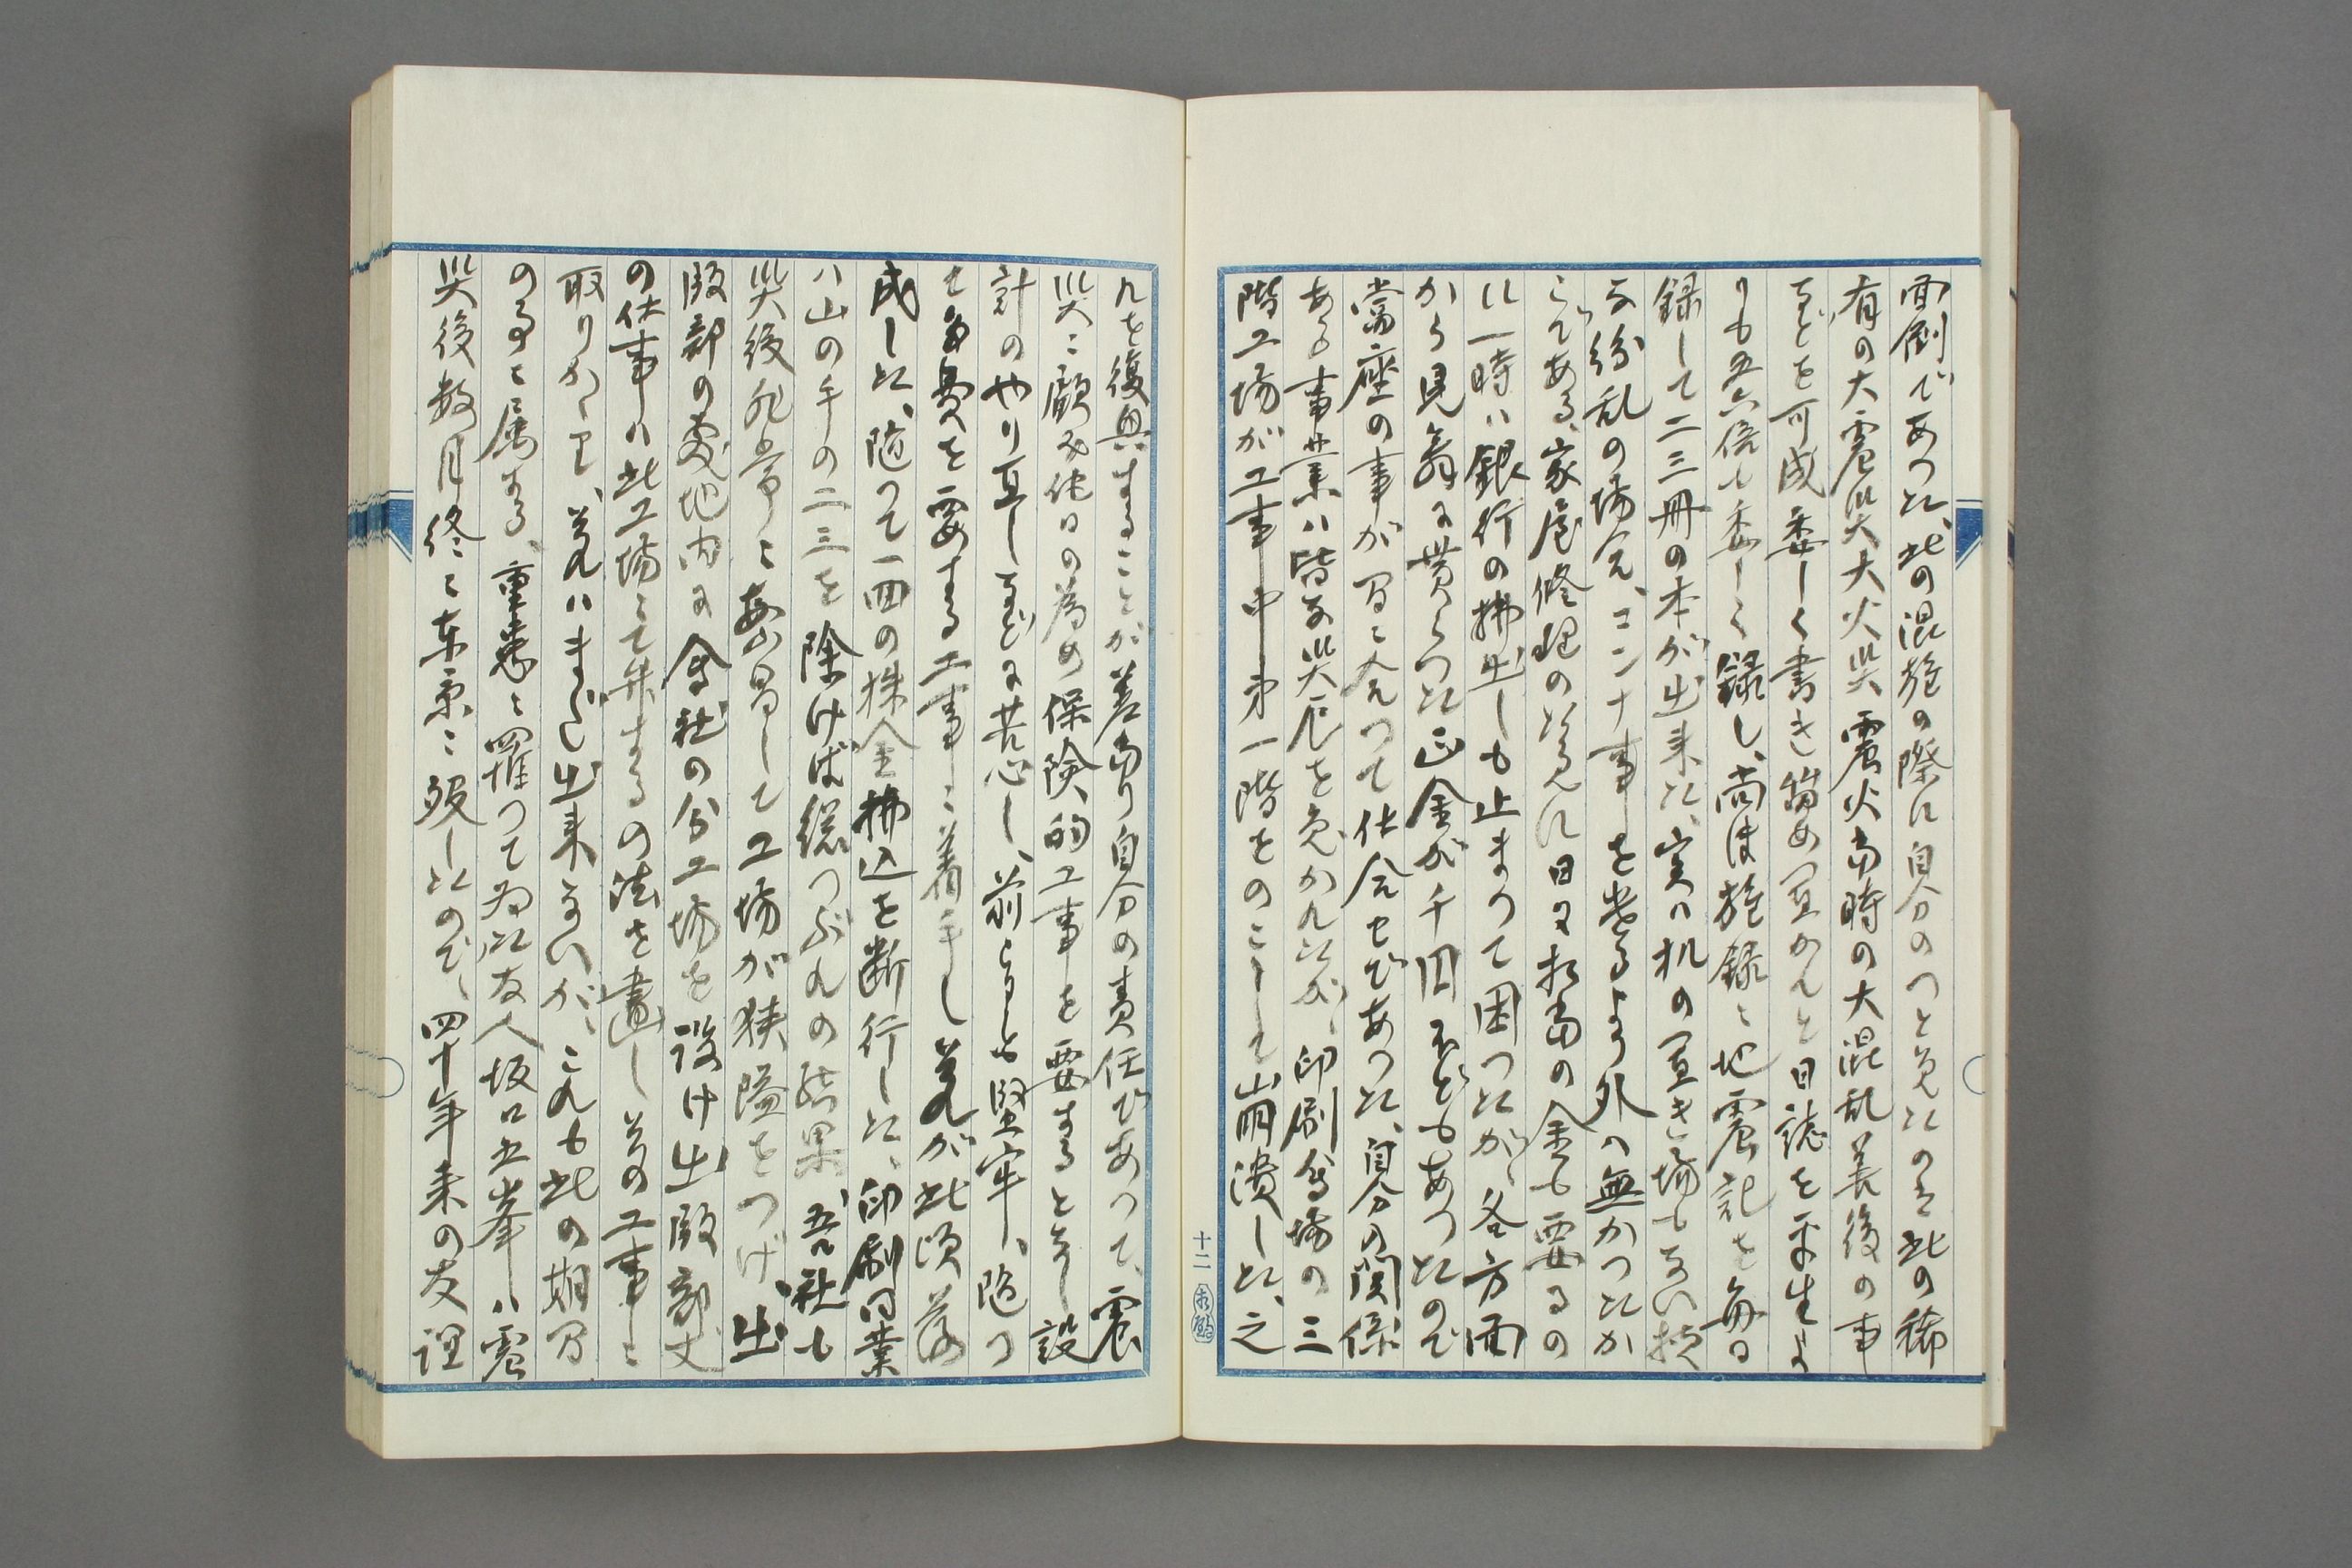 面倒であつた、此の混雑の際に自分のつとめたのは此の稀
有の大震災大火災震火当時の大混乱善後の事
などを可成委しく書き留め置かんと日誌を平生よ
りも五六倍も委しく録し、尚ほ雑録に地震記を毎日
録して二三冊の本が出来た、実ハ机の置き場もない様
な紛乱の場合、コンナ事を光るより外ハ無かつたか
らである、家屋修理の為めに日に相当の金も要るの
に一時ハ銀行の払出しも止まつて困つたが、各方面
から見舞に貰らつた正金が千円ほどもあつたので
当座の事が間に合つて仕合せであつた、自分の関係
ある事業ハ皆な災厄を免かれたが、印刷工場の三
階工場が工事中第一階をのこして崩潰した、之
れを復興することが差当り自分の責任であつて、震
災に顧み他日の為め保険的工事を要するとなし設
計のやり直しなどに苦心し、前よりも堅牢、随つ
て多費を要する工事に着手し其れが此頃落
成した、随つて一回の株金払込を断行した、印刷同業
ハ山の手の二三を除けば総つぶれの結果、吾社も
災後非常に繁昌して工場が狭隘をつげ、出
版部の敷地内に会社の分工場を設け出版部丈
の仕事ハ此工場にて弁するの法を画し其の工事に
取りかゝり、其れハまだ出来ないが、これも此の期間
の事に属する、重患に罹つて居た友人坂口五峯ハ震
災後数月終に東京に歿したので、四十年来の友誼
十二